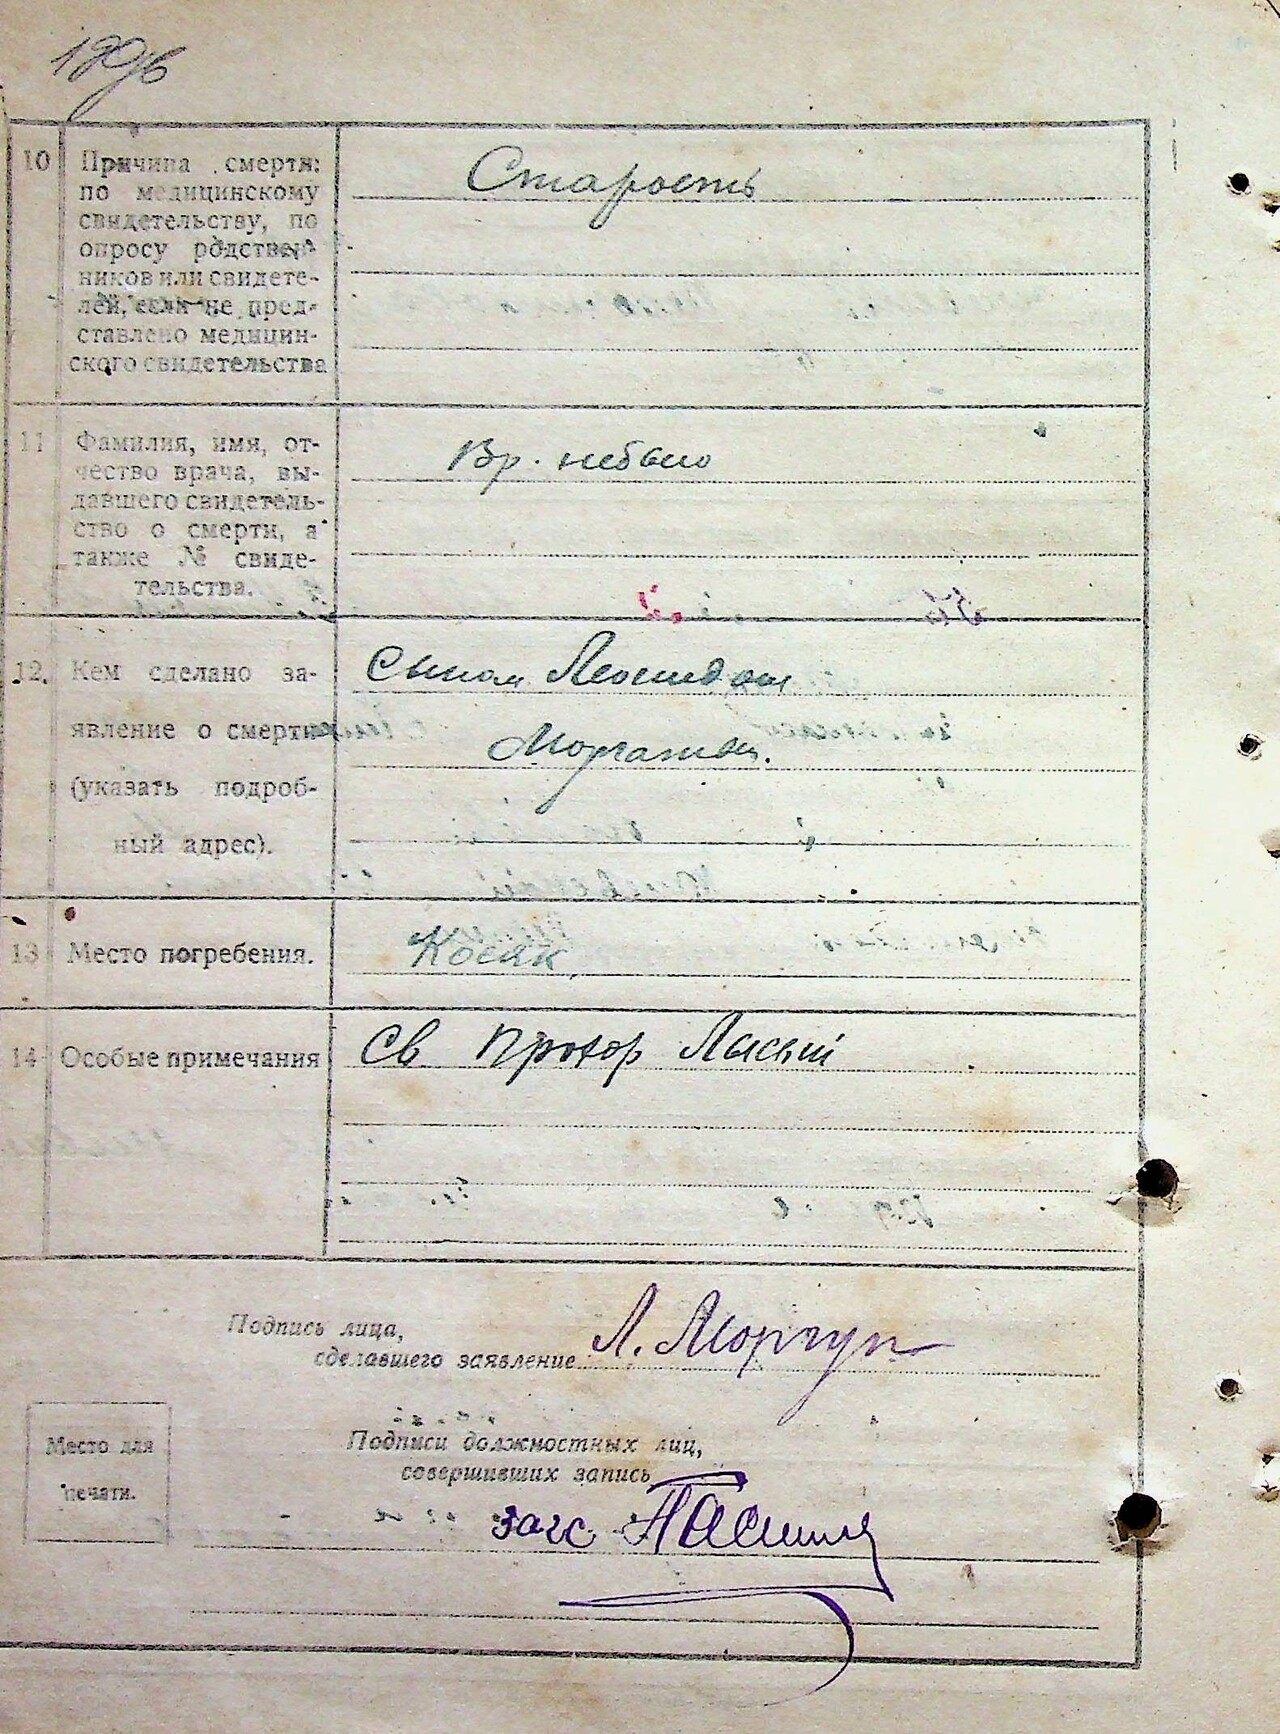 10 Причина смерти:
по медицинскому
свидетельству, по
опросу родствен-
ников или свидете-
лей, если не пред-
ставлено медицин-
ского свидетельства
Старость
11 Фамилия, имя, от-
чество врача, вы-
давшего свидетель-
ство о смерти, а
также № свиде-
тельства.
Вр. небыло
12. Кем сделано за-
явление о смерти
(указать подроб-
ный адрес).
Сыном Леонидом
13 Место погребения.
Косяк
14 Особые примечания
Св Прохор Лысый
Подпись лица,
сделавшего заявление
Л. Моргун
Подписи должностных лиц,
совершивших запись
Место для
печати.
загс